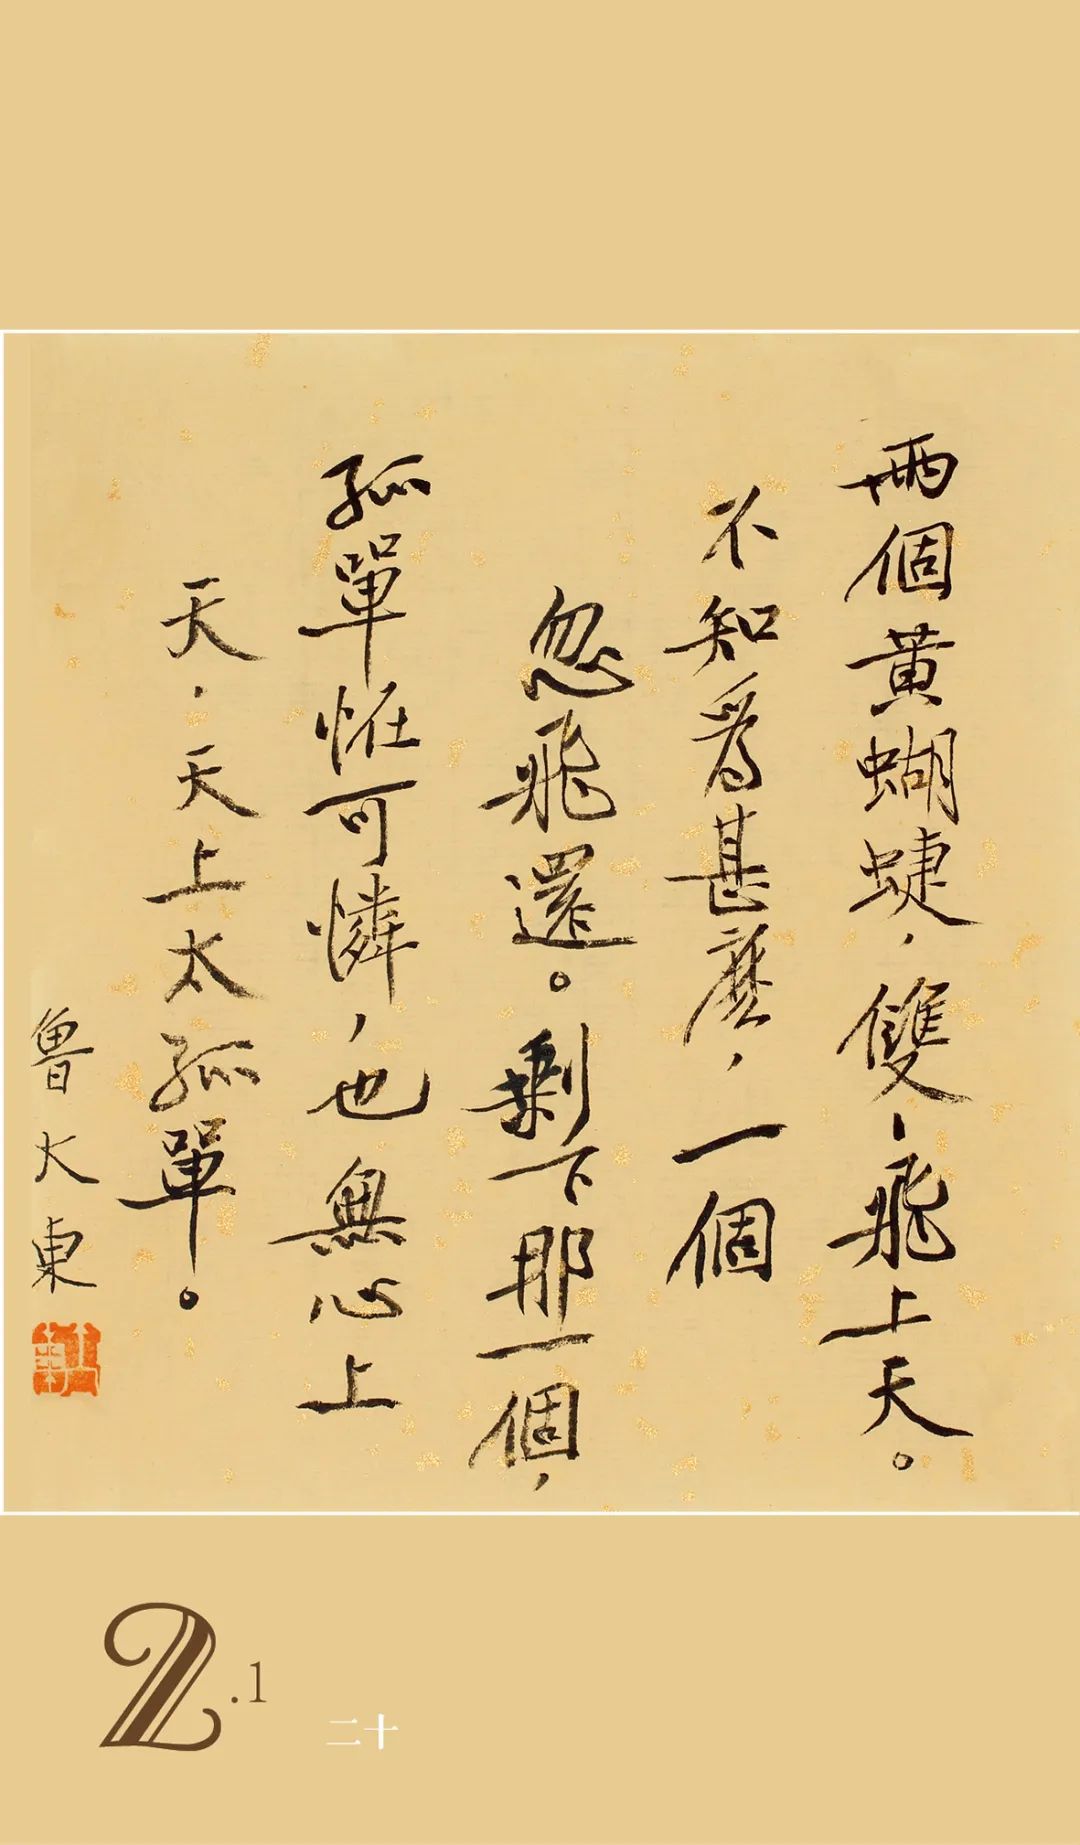 兩個黃蝴蜨，雙〻飛上天。
不知爲甚麽，一個
忽飛還。剩下那一個，
孤單恠可憐，也無心上
天，天上太孤單。
魯大東
2.1
二十